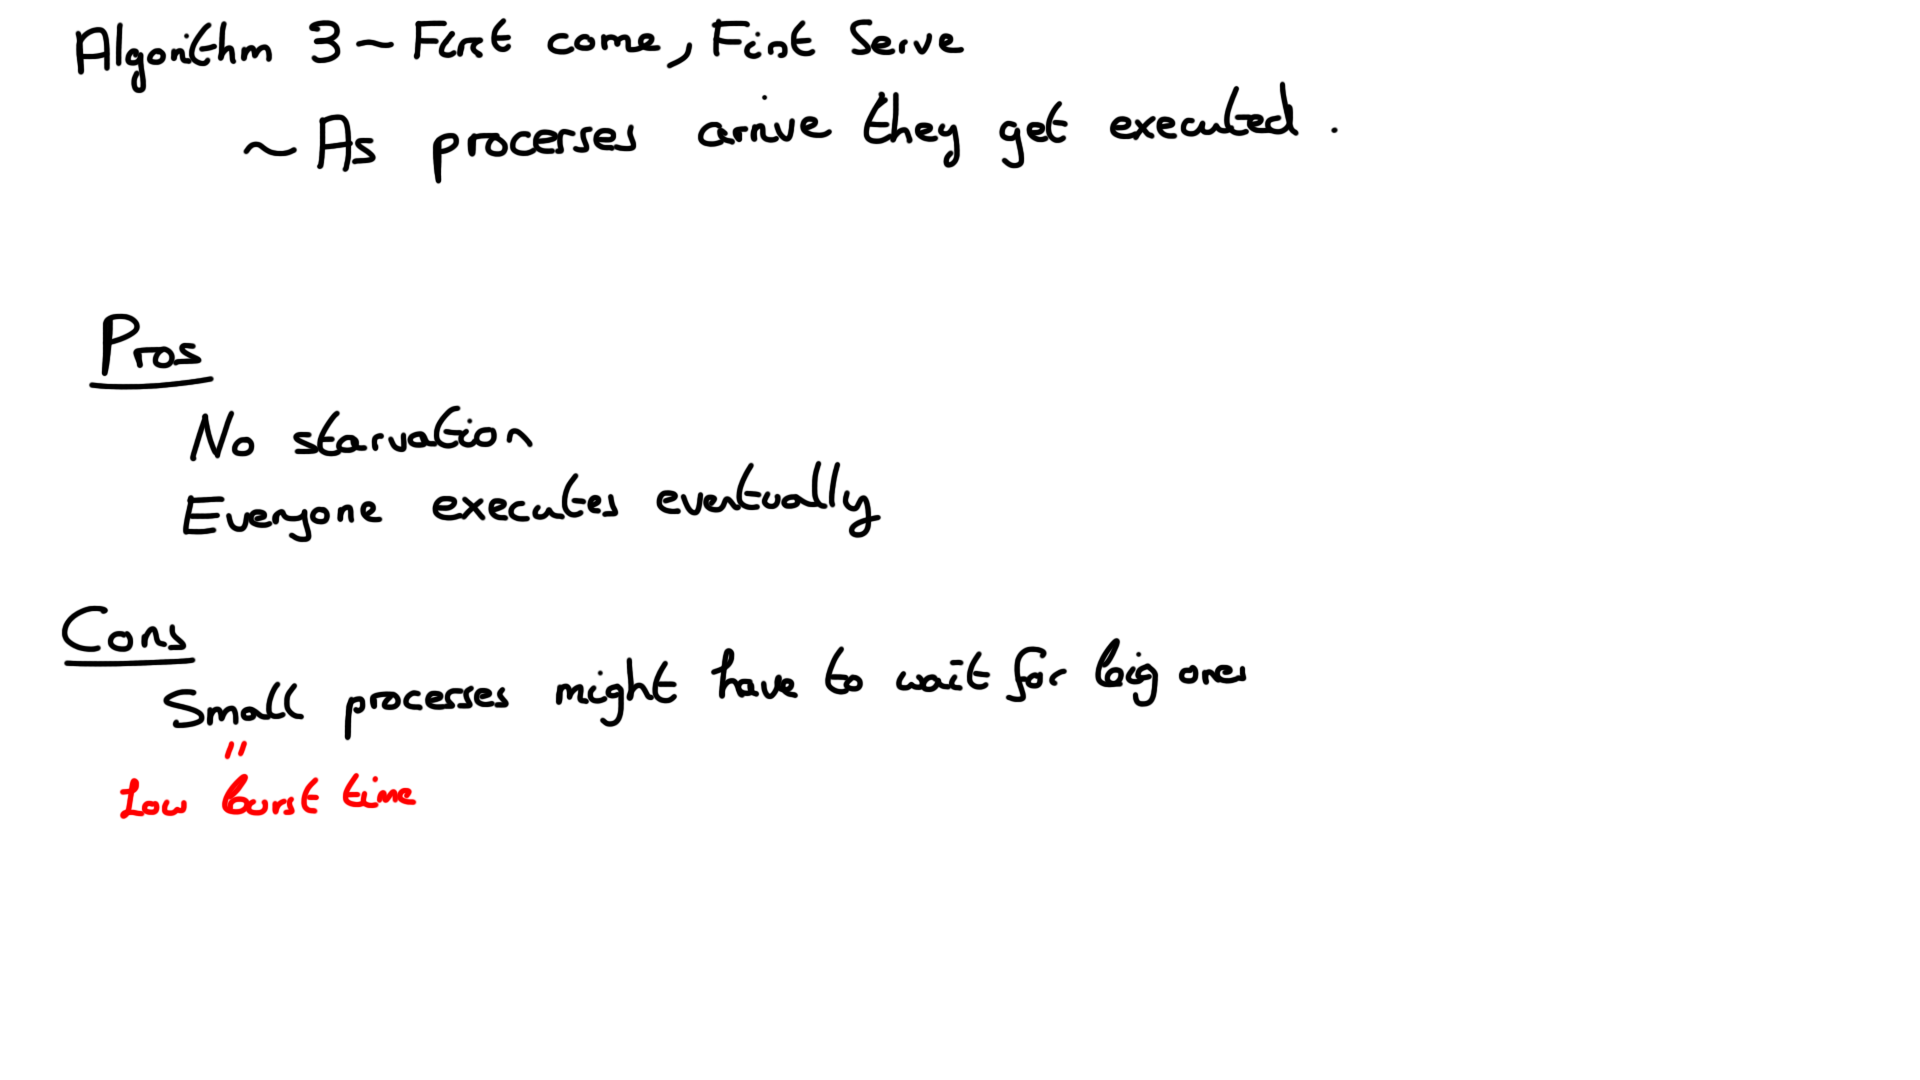 Algorithm 3 ~ First come, First Serve
~ As processes arrive they get executed.
Pros
No starvation
Everyone executes eventually
Cons
Small processes might have to wait for big ones
"
Low burst time